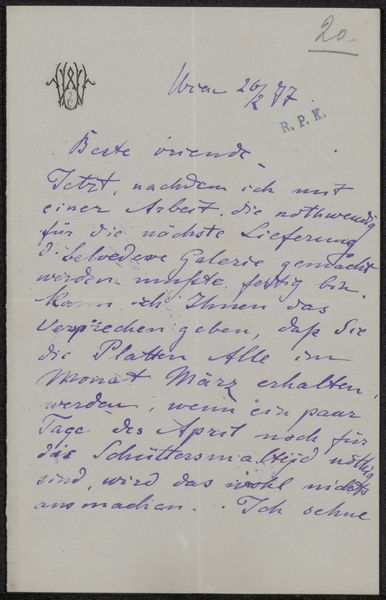 20
Wien 26/2 77
R. P. K.
Beste vriende
Jetzt, nachdem ich mit
einer Arbeit, die nothwendig
für die nächste Lieferung
d. belvedere Galerie gemacht
werden mußte fertig bin
kann ich Ihnen das
Versprechen geben, daß Sie
die Platten Alle im
Monat März erhalten
werden, wenn ein paar
Tage des April noch für
das Schüttersmaltijd nöthig
sind, wird das wohl nichts
ausmachen. Ich sehne